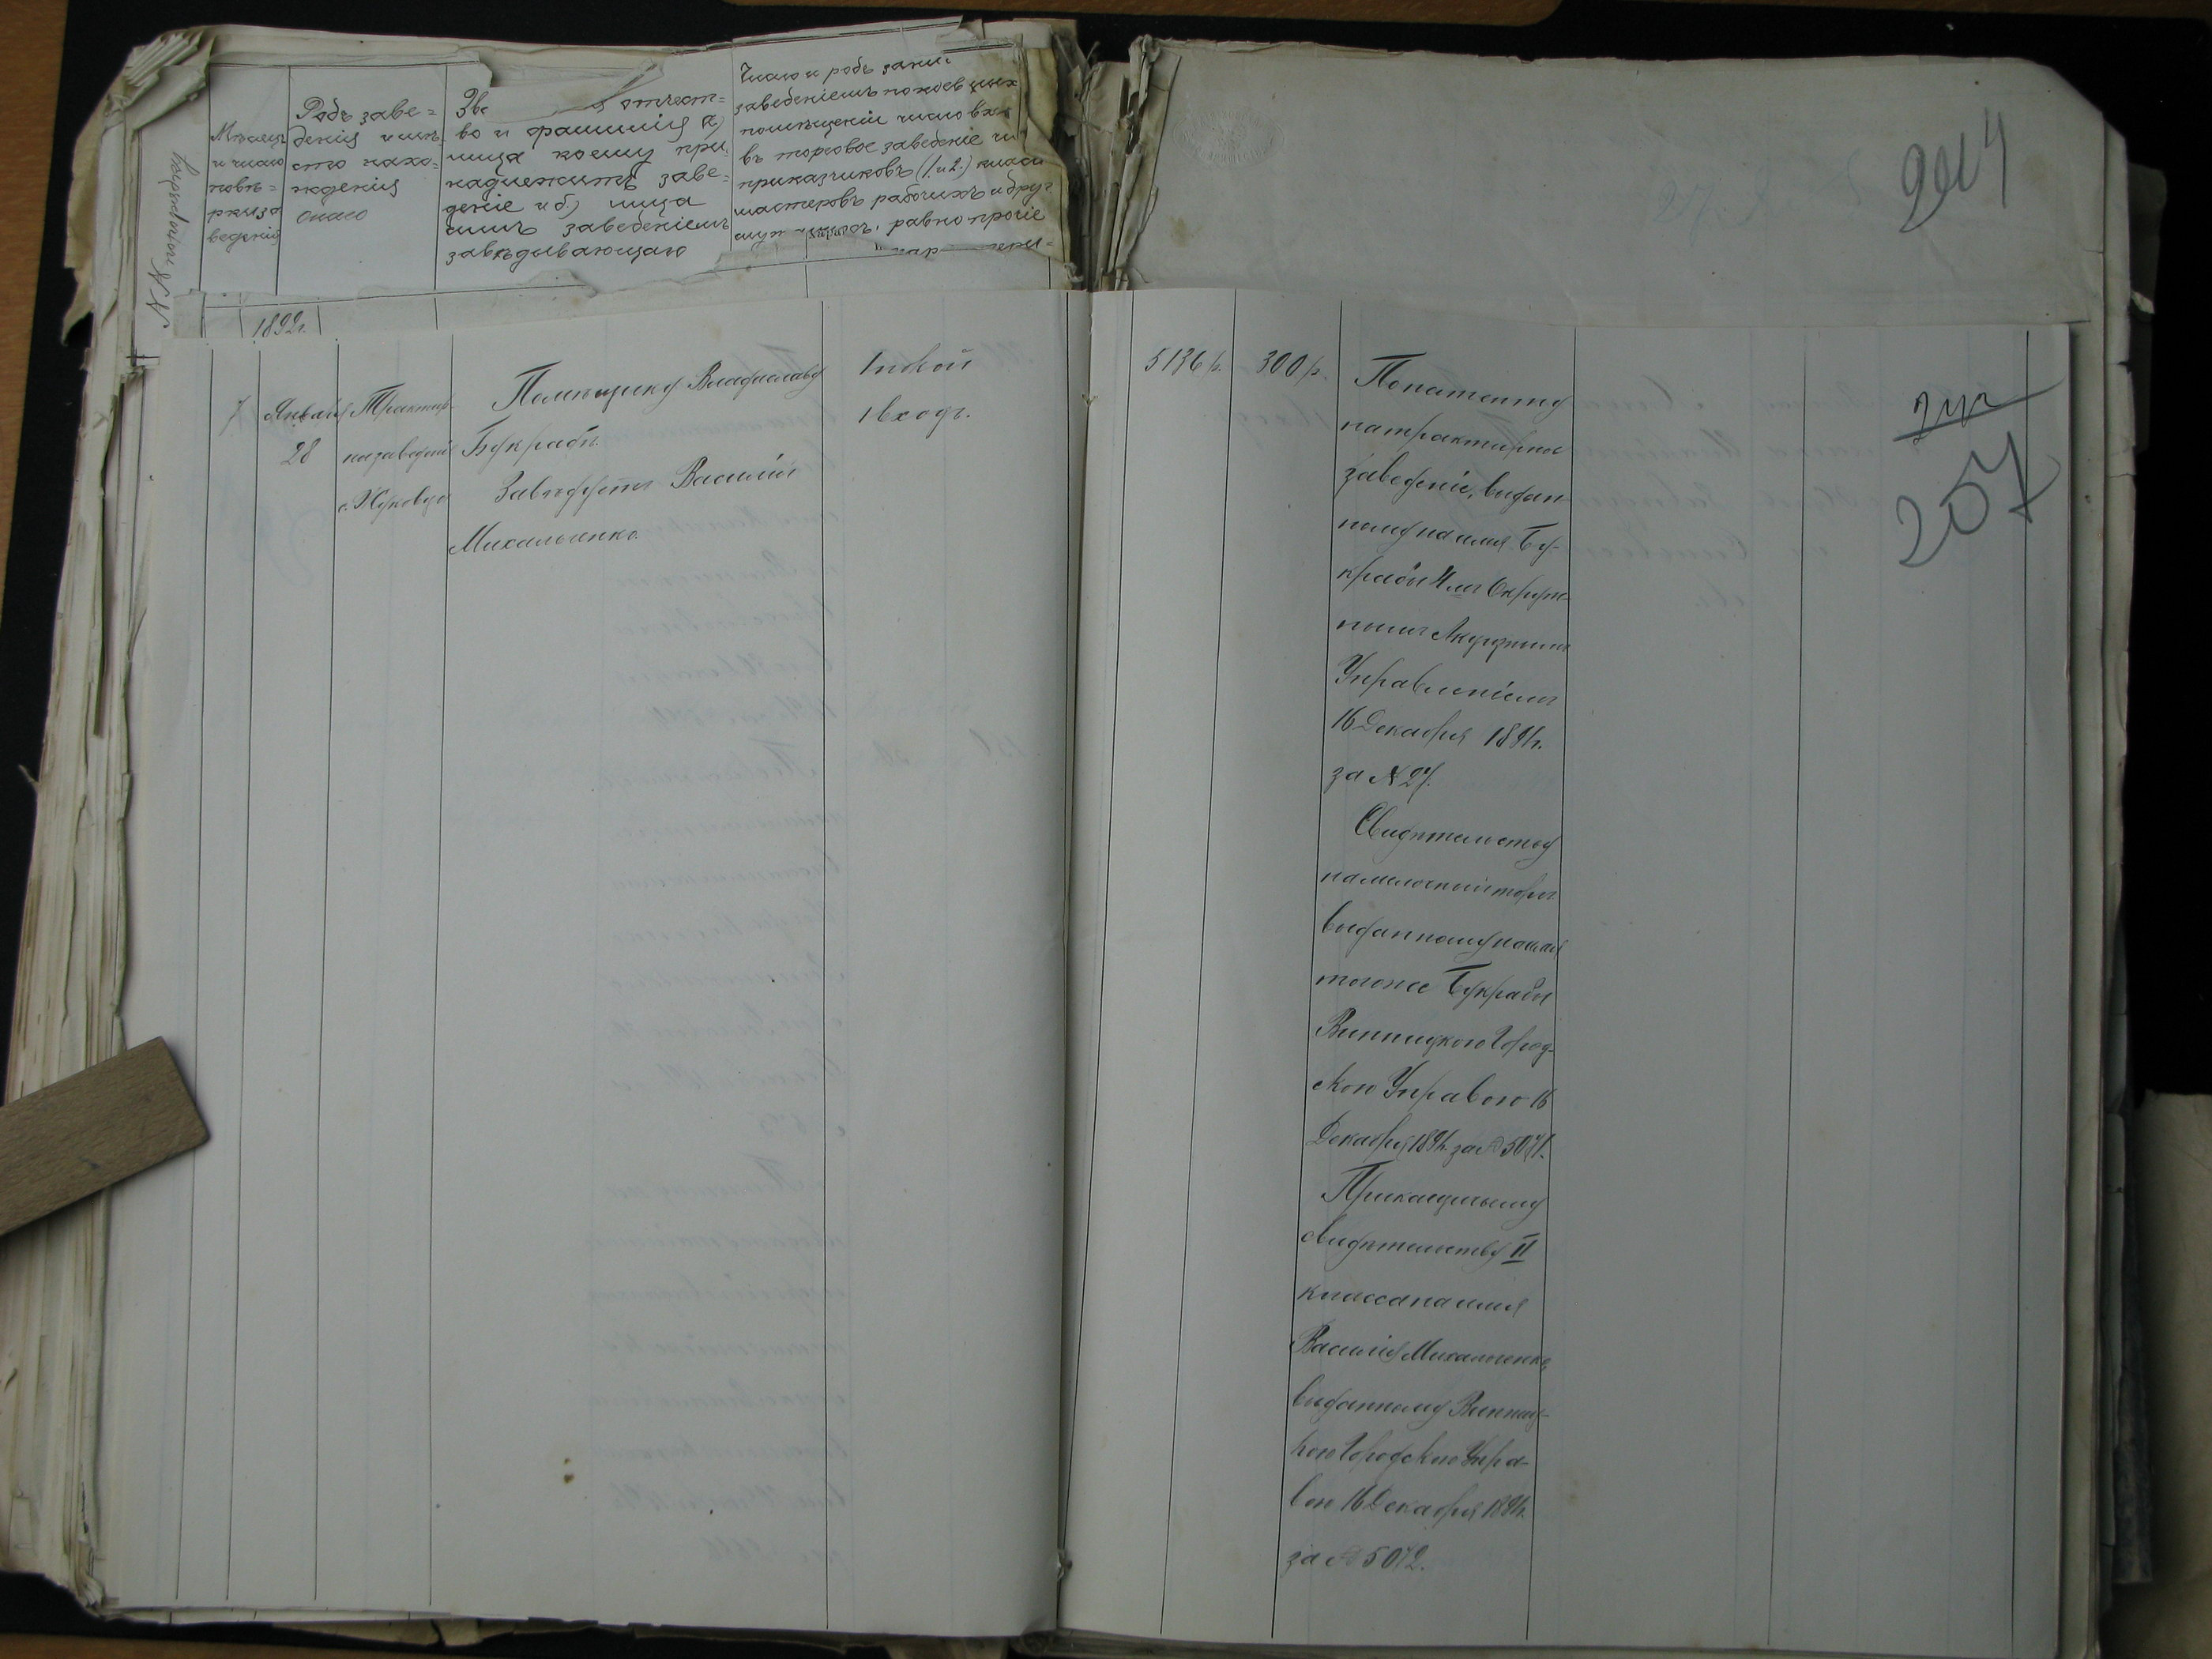 Мѣсяцъ
и число
повѣ=
рки за
веденій
Родъ заве=
денія и мѣ=
сто нахо=
жденія
онаго
отчест=
во и фамилія а)
лица коему при=
надлежитъ заве=
деніе и б) лица
симъ заведеніемъ
завѣдывающаго
Число и родъ зани
заведеніемъ покоевъ
помѣщеніи число вхо
въ торговое заведеніе
прикащиковъ (1 и 2) класс
мастеровъ рабочихъ и друг
равно прочіе
1892г.
7
Января
28
Трактир-
ное заведеніе
с. Жуковцы
Помѣщику Владиславу
Букрабы.
Завѣдуетъ Василій
Михальченко.
1 покой
1 входъ.
5136 р.
300 р.
По патенту
на трактирное
заведеніе, выдан-
ному на имя Бу-
крабы 4мъ Окруж-
нымъ Акцизнымъ
Управленіемъ
16 Декабря 1891г.
за № 27.
Свидѣтельству
на мелочный торгъ
выданному на имя
тогоже Букрабы
Винницкою Город-
скою Управою 16
Декабря 1891г. за № 5071.
Прикащичьему
свидѣтельству II
класса на имя
Василія Михальченко,
выданному Винниц-
кою Городскою Упра-
вою 16 Декабря 1891г.
за № 5072.
257